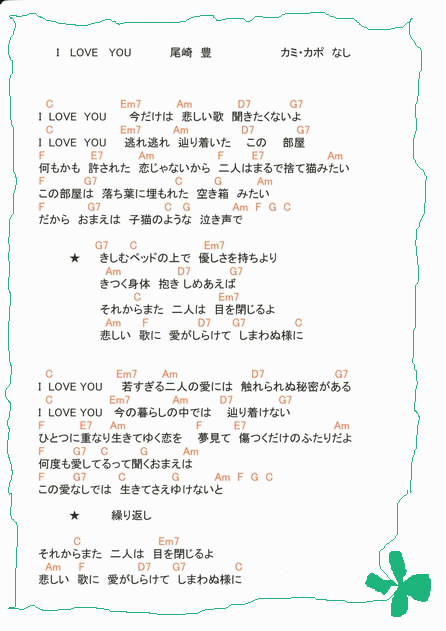 I LOVE YOU 尾崎 豊 カミ・カポ なし
C Em7 Am D7 G7
I LOVE YOU 今だけは 悲しい歌 聞きたくないよ
C Em7 Am D7 G7
I LOVE YOU 逃れ逃れ 辿り着いた この 部屋
F E7 Am F E7 Am
何もかも 許された 恋じゃないから 二人はまるで捨て猫みたい
F G7 C G Am
この部屋は 落ち葉に埋もれた 空き箱 みたい
F G7 C G Am F G C
だから おまえは 子猫のような 泣き声で
G7 C Em7
★ きしむベッドの上で 優しさを持ちより
Am D7 G7
きつく身体 抱き しめあえば
C Em7
それからまた 二人は 目を閉じるよ
Am F D7 G7 C
悲しい 歌に 愛がしらけて しまわぬ様に
C Em7 Am D7 G7
I LOVE YOU 若すぎる二人の愛には 触れられぬ秘密がある
C Em7 Am D7 G7
I LOVE YOU 今の暮らしの中では 辿り着けない
F E7 Am F E7 Am
ひとつに重なり生きてゆく恋を 夢見て 傷つくだけのふたりだよ
F G7 C G Am
何度も愛してるって聞くおまえは
F G7 C G Am F G C
この愛なしでは 生きてさえゆけないと
★ 繰り返し
C Em7
それからまた 二人は 目を閉じるよ
Am F D7 G7 C
悲しい 歌に 愛がしらけて しまわぬ様に